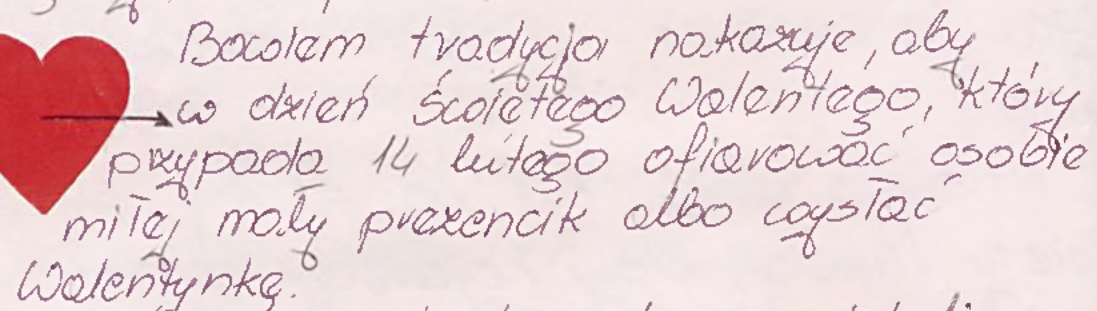 Bowiem tradycja nakazuje, aby
w dzień Świętego Walentego, który
przypada 14 lutego ofiarować osobie
miłej mały prezencik albo wysłać
Walentynkę.